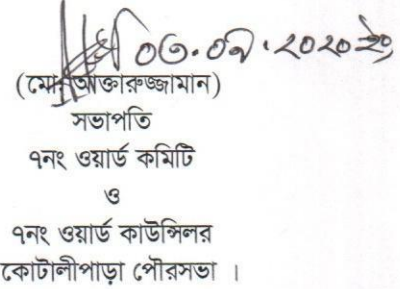 ০৩.০৭.২০২০ইং
(মোঃ আক্তারুজ্জামান)
সভাপতি
৭নং ওয়ার্ড কমিটি
ও
৭নং ওয়ার্ড কাউন্সিলর
কোটালীপাড়া পৌরসভা ।